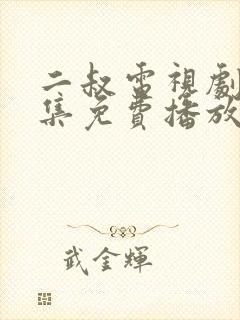 二叔電視劇
集免費播放
武金輝